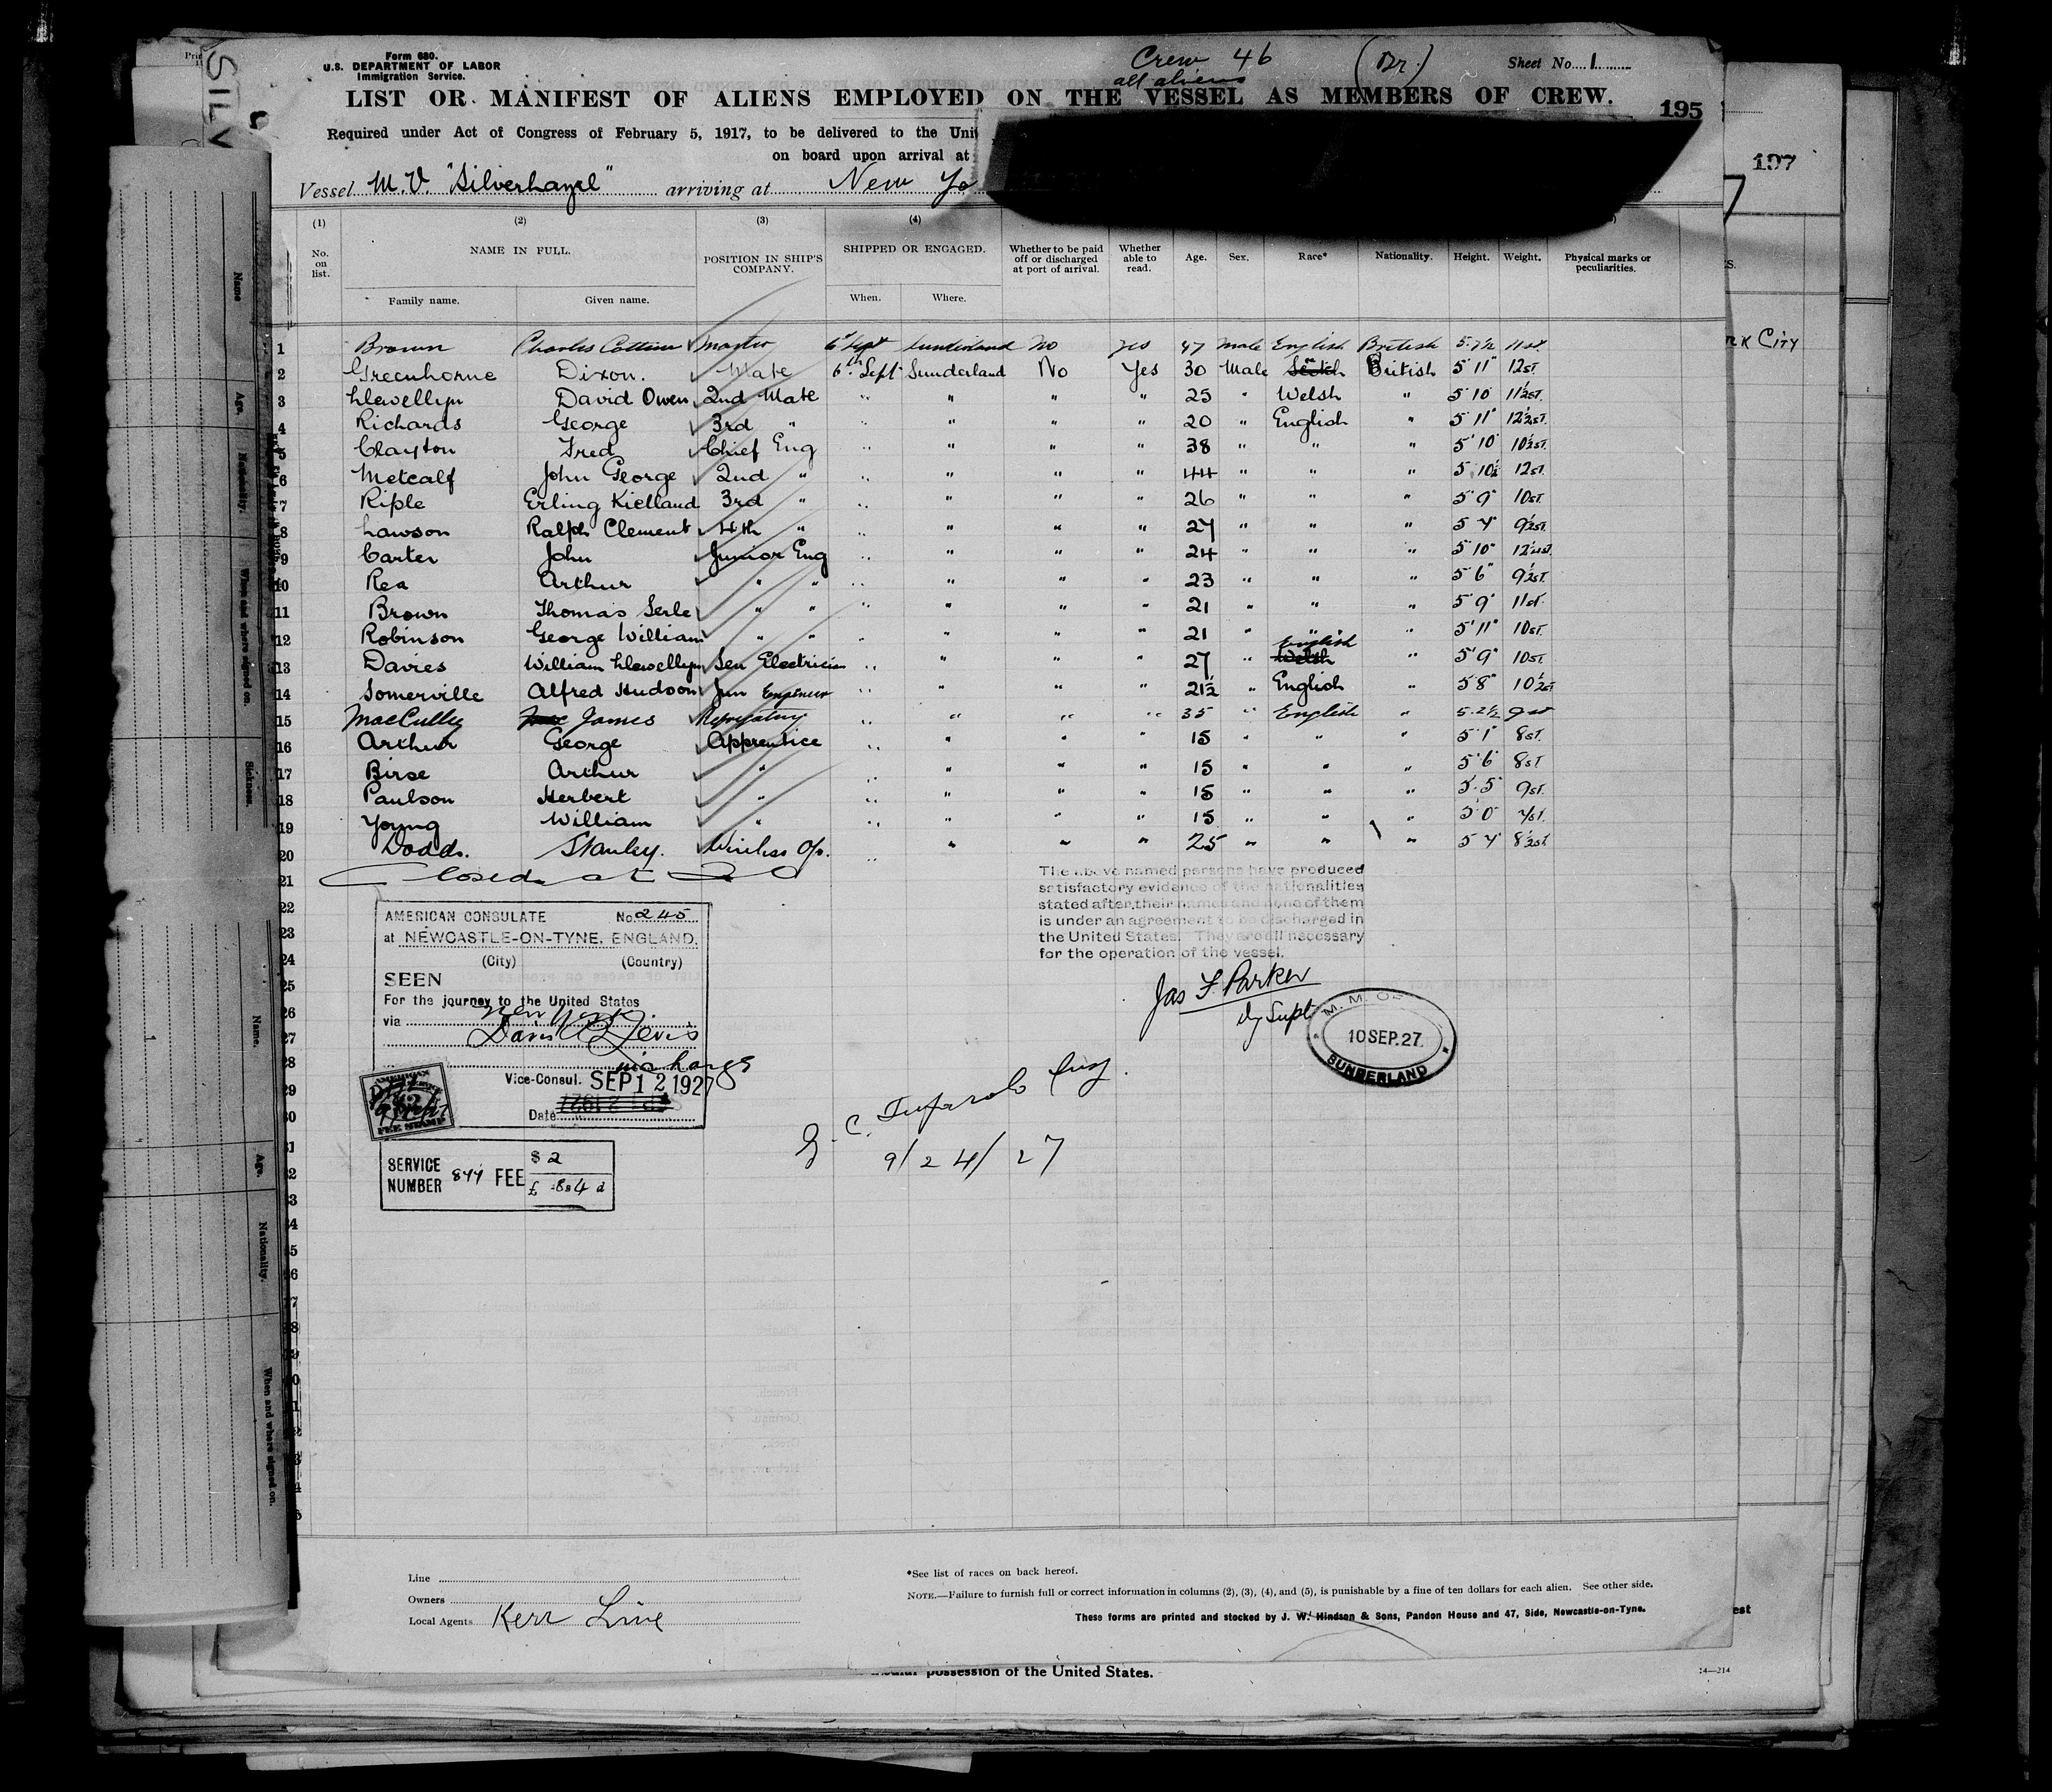 Form 680.
U.S. DEPARTMENT OF LABOR
Immigration Service.
Crew 46 (Br.)
all aliens
Sheet No. 1
LIST OR MANIFEST OF ALIENS EMPLOYED ON THE VESSEL AS MEMBERS OF CREW.
195
Required under Act of Congress of February 5, 1917, to be delivered to the Uni
on board upon arrival at
197
Vessel M.V. "Silverhazel" arriving at New Yo
(1) (2) (3) (4)
No. on list. NAME IN FULL. POSITION IN SHIP'S COMPANY. SHIPPED OR ENGAGED. Whether to be paid off or discharged at port of arrival. Whether able to read. Age. Sex. Race* Nationality. Height. Weight. Physical marks or peculiarities.
Family name. Given name. When. Where.
1 Brown Charles Master 6 Sept Sunderland No yes 47 male English British 5.7½ 11st.
2 Greenhorne Dixon. Mate 6th Sept Sunderland No Yes 30 Male Scotch British 5'11" 12st.
3 Llewellyn David Owen 2nd Mate " " " " 25 " Welsh " 5'10 11½st.
4 Richards George 3rd " " " " " 20 " English " 5'11" 12½st.
5 Clayton Fred Chief Eng " " " " 38 " " " 5'10" 10½st.
6 Metcalf John George 2nd " " " " " 44 " " " 5'10½ 12st.
7 Riple Erling Kielland 3rd " " " " " 26 " " " 5'9" 10st.
8 Lawson Ralph Clement 4th " " " " " 27 " " " 5'4" 9½st.
9 Carter John Junior Eng " " " " 24 " " " 5'10" 12½st.
10 Rea Arthur " " " " " " 23 " " " 5'6" 9½st.
11 Brown Thomas Serle " " " " " " 21 " " " 5'9" 11st.
12 Robinson George William " " " " " " 21 " " " 5'11" 10st.
13 Davies William Llewellyn Sen Electrician " " " " 27 " Welsh English " 5'9" 10st.
14 Somerville Alfred Hudson Jun Engineer " " " " 21½ " English " 5'8" 10½st
15 MacCulley James " " " " 35 " English " 5.2½ 9st
16 Arthur George Apprentice " " " " 15 " " " 5'1" 8st.
17 Birse Arthur " " " " " 15 " " " 5'6 8st
18 Paulson Herbert " " " " " 15 " " " 5.5" 9st.
19 Young William " " " " " 15 " " " 5'0" 7st.
20 Dodds. Stanley. Wireless Op. " " " " 25 " " " 5'4" 8½st.
21 Closed at 20
22
23
24
25
26
27
28
29
30
The above named persons have produced
satisfactory evidence of the nationalities
stated after their names and none of them
is under an agreement to be discharged in
the United States. They are all necessary
for the operation of the vessel.
Jas F. Parker
Dy Supt
M. M. O
10 SEP. 27
SUNDERLAND
AMERICAN CONSULATE No. 245
at NEWCASTLE-ON-TYNE, ENGLAND.
(City) (Country)
SEEN
For the journey to the United States
via New York
Vice-Consul. SEP 12 1927
Date
AMERICAN
FEE STAMP
SERVICE NUMBER 844 FEE $ 2
£ 8s 4 d
9/24/27
Line
Owners
Local Agents Kerr Line
*See list of races on back hereof.
NOTE.—Failure to furnish full or correct information in columns (2), (3), (4), and (5), is punishable by a fine of ten dollars for each alien. See other side.
These forms are printed and stocked by J. W. Hindson & Sons, Pandon House and 47, Side, Newcastle-on-Tyne.
possession of the United States.
14—214
Name
Age.
Nationality.
When and where signed on.
Sickness.
Name.
Age.
Nationality.
When and where signed on.
SILV
RK CITY
est